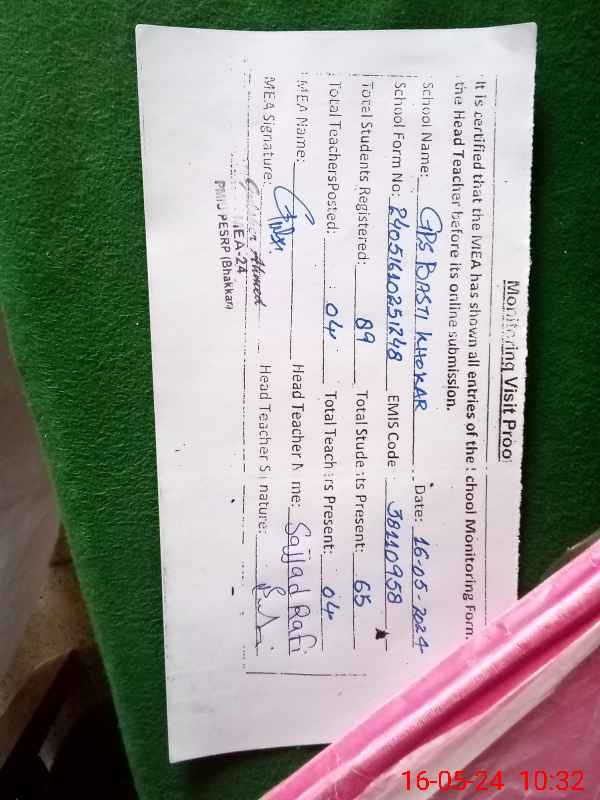 Monitoring Visit Proo
It is certified that the MEA has shown all entries of the School Monitoring Form
the Head Teacher before its online submission.
School Name: GPS BASTI KHOKAR Date: 16-05-2024
School Form No: 24051610251248 EMIS Code: 38110958
Total Students Registered: 89 Total Students Present: 65
Total Teachers Posted: 04 Total Teachers Present: 04
MEA Name: Head Teacher Name: Sajjad Rafi
MEA Signature: Head Teacher Signature:
Ahmed
MEA-24
PMIU PESRP (Bhakkar)
16-05-24 10:32